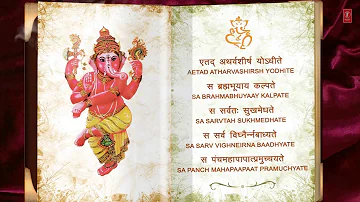 एतद् अथर्वशीर्षं योऽधीते
AETAD ATHARVASHIRSH YODHITE
स ब्रह्मभूयाय कल्पते
SA BRAHMABHUYAAY KALPATE
स सर्वतः सुखमेधते
SA SARVTAH SUKHMEDHATE
स सर्व विघ्नैर्नबाध्यते
SA SARV VIGHNEIRNA BAADHYATE
स पंचमहापापात्प्रमुच्यते
SA PANCH MAHAPAAPAAT PRAMUCHYATE